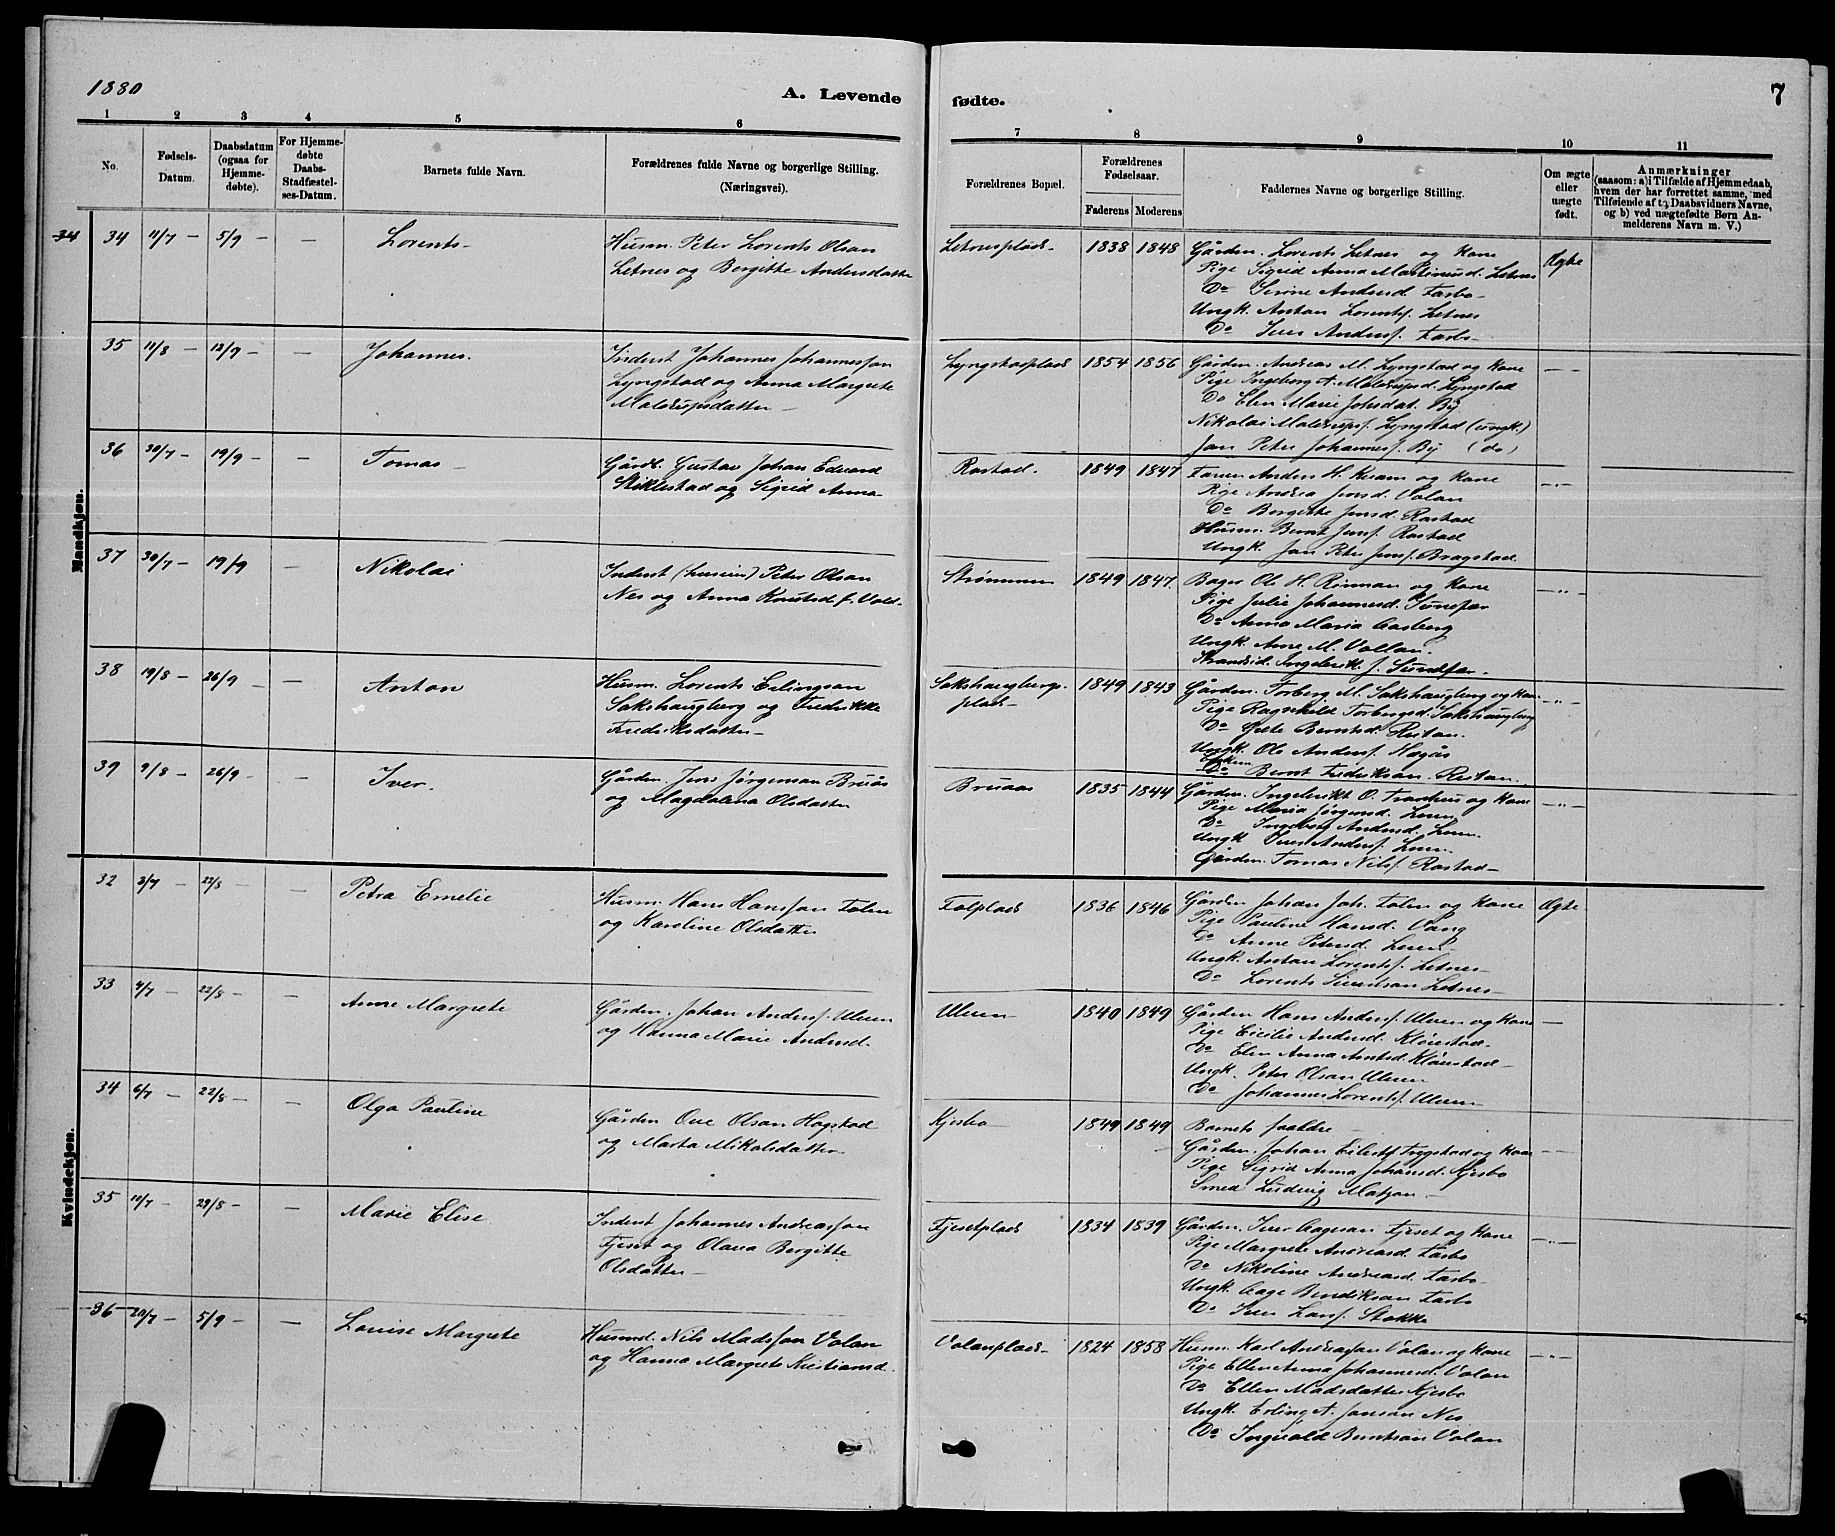 1880
A. Levende
fødte.
7
1 2 3 4 5 6 7 8 9 10 11
No.
Fødsels-
Datum.
Daabsdatum
(ogsaa for
Hjemme-
døbte).
For Hjemme-
døbte
Daabs-
Stadfæstel-
ses-Datum.
Barnets fulde Navn.
Forældrenes fulde Navne og borgerlige Stilling.
(Næringsvei).
Forældrenes Bopæl.
Forældrenes
Fødselsaar.
Faderens Moderens
Faddernes Navne og borgerlige Stilling.
Om ægte
eller
uægte
født.
Anmærkninger
(saasom: a) i Tilfælde af Hjemmedaab,
hvem der har forrettet samme, med
Tilføiende af to Daabsvidners Navne,
og b) ved uægtefødte Børn An-
melderens Navn m. V.)
Mandkjøn.
34 34 11/7 - 5/9 - - Lorents-
Husm. Peter Lorents Olsan
Letnes og Bergitte Andersdatter
Letnesplads- 1838 1848
Gården. Lorents Letnes og Kone
Pige Sigrid Anna Martinusd. Letnes
Do Serine Andersd. Færbo-
Ungk. Antan Lorentsf. Letnes
Do Iver Andersf. Færbo-
Ægte
35 11/8 - 12/9 - - Johannes.
Inderst Johannes Johannesson
Lyngstad og Anna Margrete
datter -
Lyngstadplads 1854 1856
Gården. Andreas M. Lyngstad og Kone
Pige Ingeborg A. Lyngstad
Do Elen Marie Johsdat. By
Nikolai Lyngstad (ungk.)
Jan Peter Johannesf. By (do)
36 30/7 - 19/9 - - Tomas -
Gårdb. Gustav Johan Edvard
Stiklestad og Sigrid Anna-
Rostad. 1849 1847
Anders H. Kvam og Kone
Pige Andrea Jensd. Volan
Do Bergitte Jensd. Rostad
Husm. Bernt Jensf. Rostad
Ungk. Jan Peter Jensf. Bragstad.
37 30/7 - 19/9 - Nikolai
Inderst Peter Olsan
Nes og Anna Knutsd. f. Vold-
Strømmen 1849 1847.
Bager Ole H. Rinnan og Kone
Pige Julie Johannesd. Sundfær
Do Anna Maria Aasberg
Ungk. Arne M. Vollan.
Strandsid. Ingebrik. J. Sundfær.
38 19/8 - 26/9 - - Anton
Husm. Lorents Erlingsan
Sakshaugberg og Fredrikke
Fredriksdatter -
Sakshaugbergs-
plads- 1849 1843
Gården. Torberg M. Sakshaugberg og Kone
Pige Ragnhild Torbergsd. Sakshaugberg
Do Grete Berntsd. Ristan.
Ungk. Ole Andersf. Hegås
Do Bernt Fredriksan Ristan.
39 9/8 - 26/9 - - Iver.
Gården. Jens Jørgensan Bruås
og Magdalena Olsdatter
Bruaas 1835 1844
Gården. Ingebrikt O. og Kone
Pige Maria Jørgensd. Leren
Do Ingeborg Andersd. Leren.
Ungk. Iver Andersf. Leren.
Gården. Tomas Nilsf. Rostad-
Kvindekjøn.
32 3/7 - 22/8 - Petra Emelie
Husm. Hans Hansson Folen
og Karoline Olsdatter
Folplads 1836 1846
Gården Johan Joh. Folen og Kone
Pige Pauline Hansd. Vang
Do Anne Petersd. Leren-
Ungk. Antan Lorentsf. Letnes-
Do Lorents Letnes-
Ægte
33 4/7 - 22/8 - - Anne Margrete
Gården. Johan Andersf. Ulven
og Hanna Marie Andersd.
Ulven- 1840 1849
Gården Hans Andersf. Ulven og Kone
Pige Cicilie Andersd. Klæustad-
Do Elen Anna Arntsd. Klæustad-
Ungk. Peter Olsan Ulven
Do Johannes Lorentsf. Ulven
34 6/7 - 22/8 - - Olga Pauline
Gården Ove Olsan Hogstad
og Marta Mikalsdatter
Kjesbo 1849 1849
Barnets foraldre -
Gården. Johan og Kone
Pige Sigrid Anna Johansd. Kjesbo
Smed Ludvig Matson -
35 12/7 - 29/8 - - Marie Elise
Inderst Johannes Andreasson
Fjeset og Olava Bergitte
Olsdatter -
Fjesetplads 1834 1839
Gården. Iver Aagesan Fjeset og Kone
Pige Margrete Andreasd. Færbo
Do Nikoline Andreasd. Færbo-
Ungk. Aage Bendiksan Færbo
Do Iver Larsf. Stokke
36 20/7 - 5/9 - - Louise Margrete
Husmd. Nils Madsson Volan
og Hanna Margrete Kristiansd.
Volanplads- 1824 1858
Husm. Karl Andersson Volan og Kone
Pige Ellen Anna Johannesd. Volan
Do Ellen Madsdatter Kjesbo
Ungk. Erling A. Jansan Nes
Do Ingvald Berntsan Volan